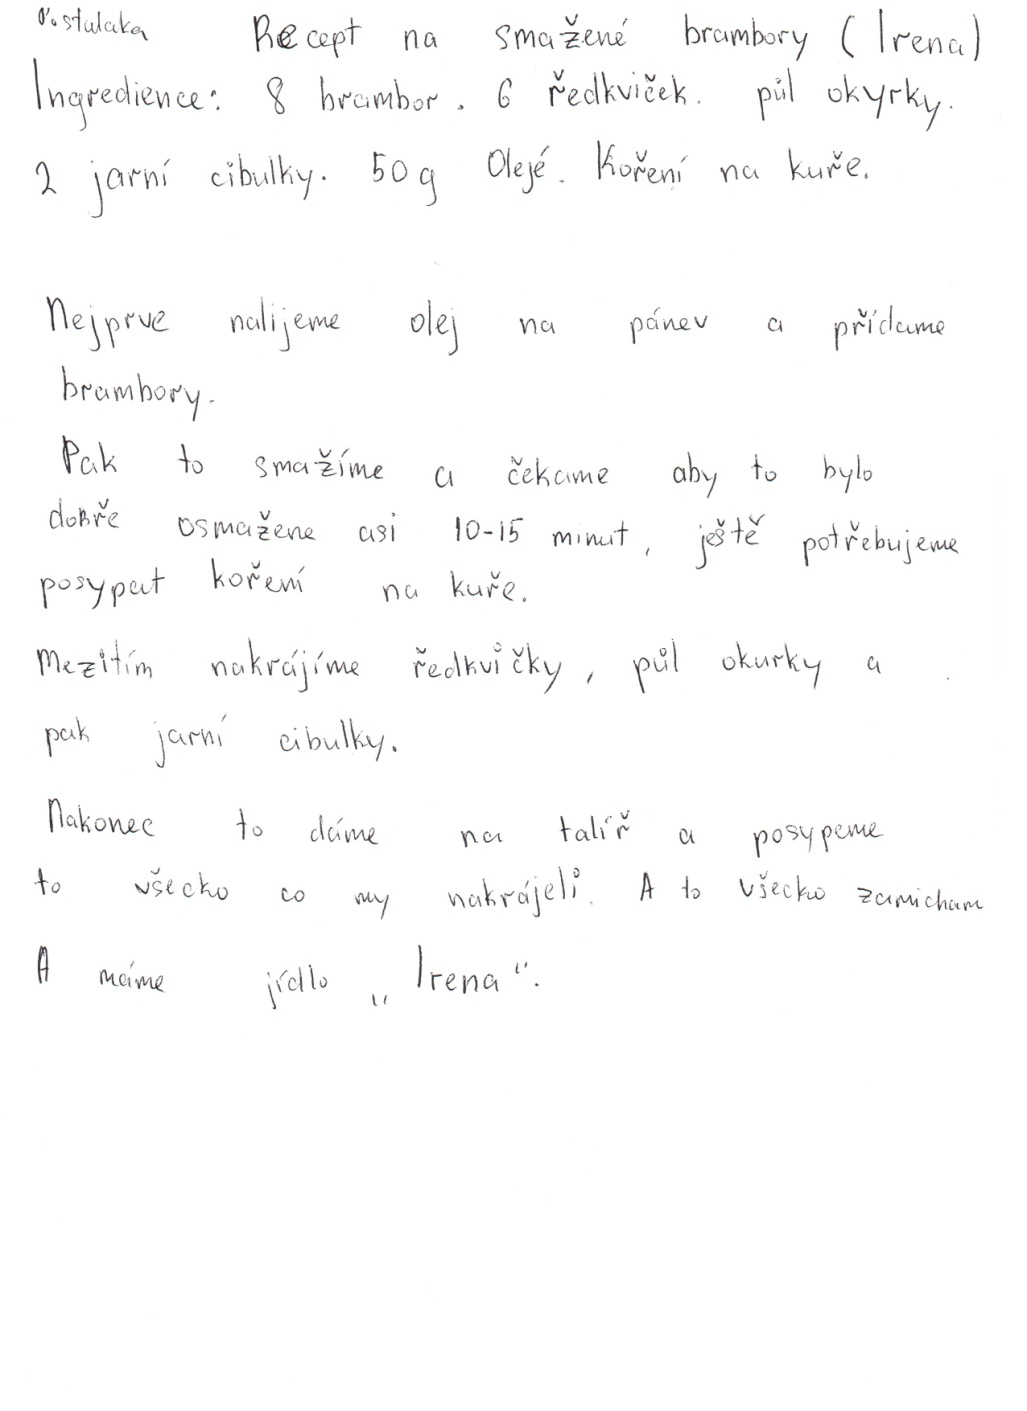 Recept na smažené brambory (Irena)
Ingredience: 8 brambor. 6 ředkviček. půl okyrky.
2 jarní cibulky. 50g Olejé. Koření na kuře.
Nejprve nalijeme olej na pánev a přídame
brambory.
Pak to smažíme a čekame aby to bylo
dobře osmažene asi 10-15 minut, ještě potřebujeme
posypat koření na kuře.
Mezitím nakrájíme ředkvičky, půl okurky a
pak jarní cibulky.
Nakonec to dáme na talíř a posypeme
to všecko co my nakrájeli. A to všecko zamicham
A máme jídlo „Irena“.